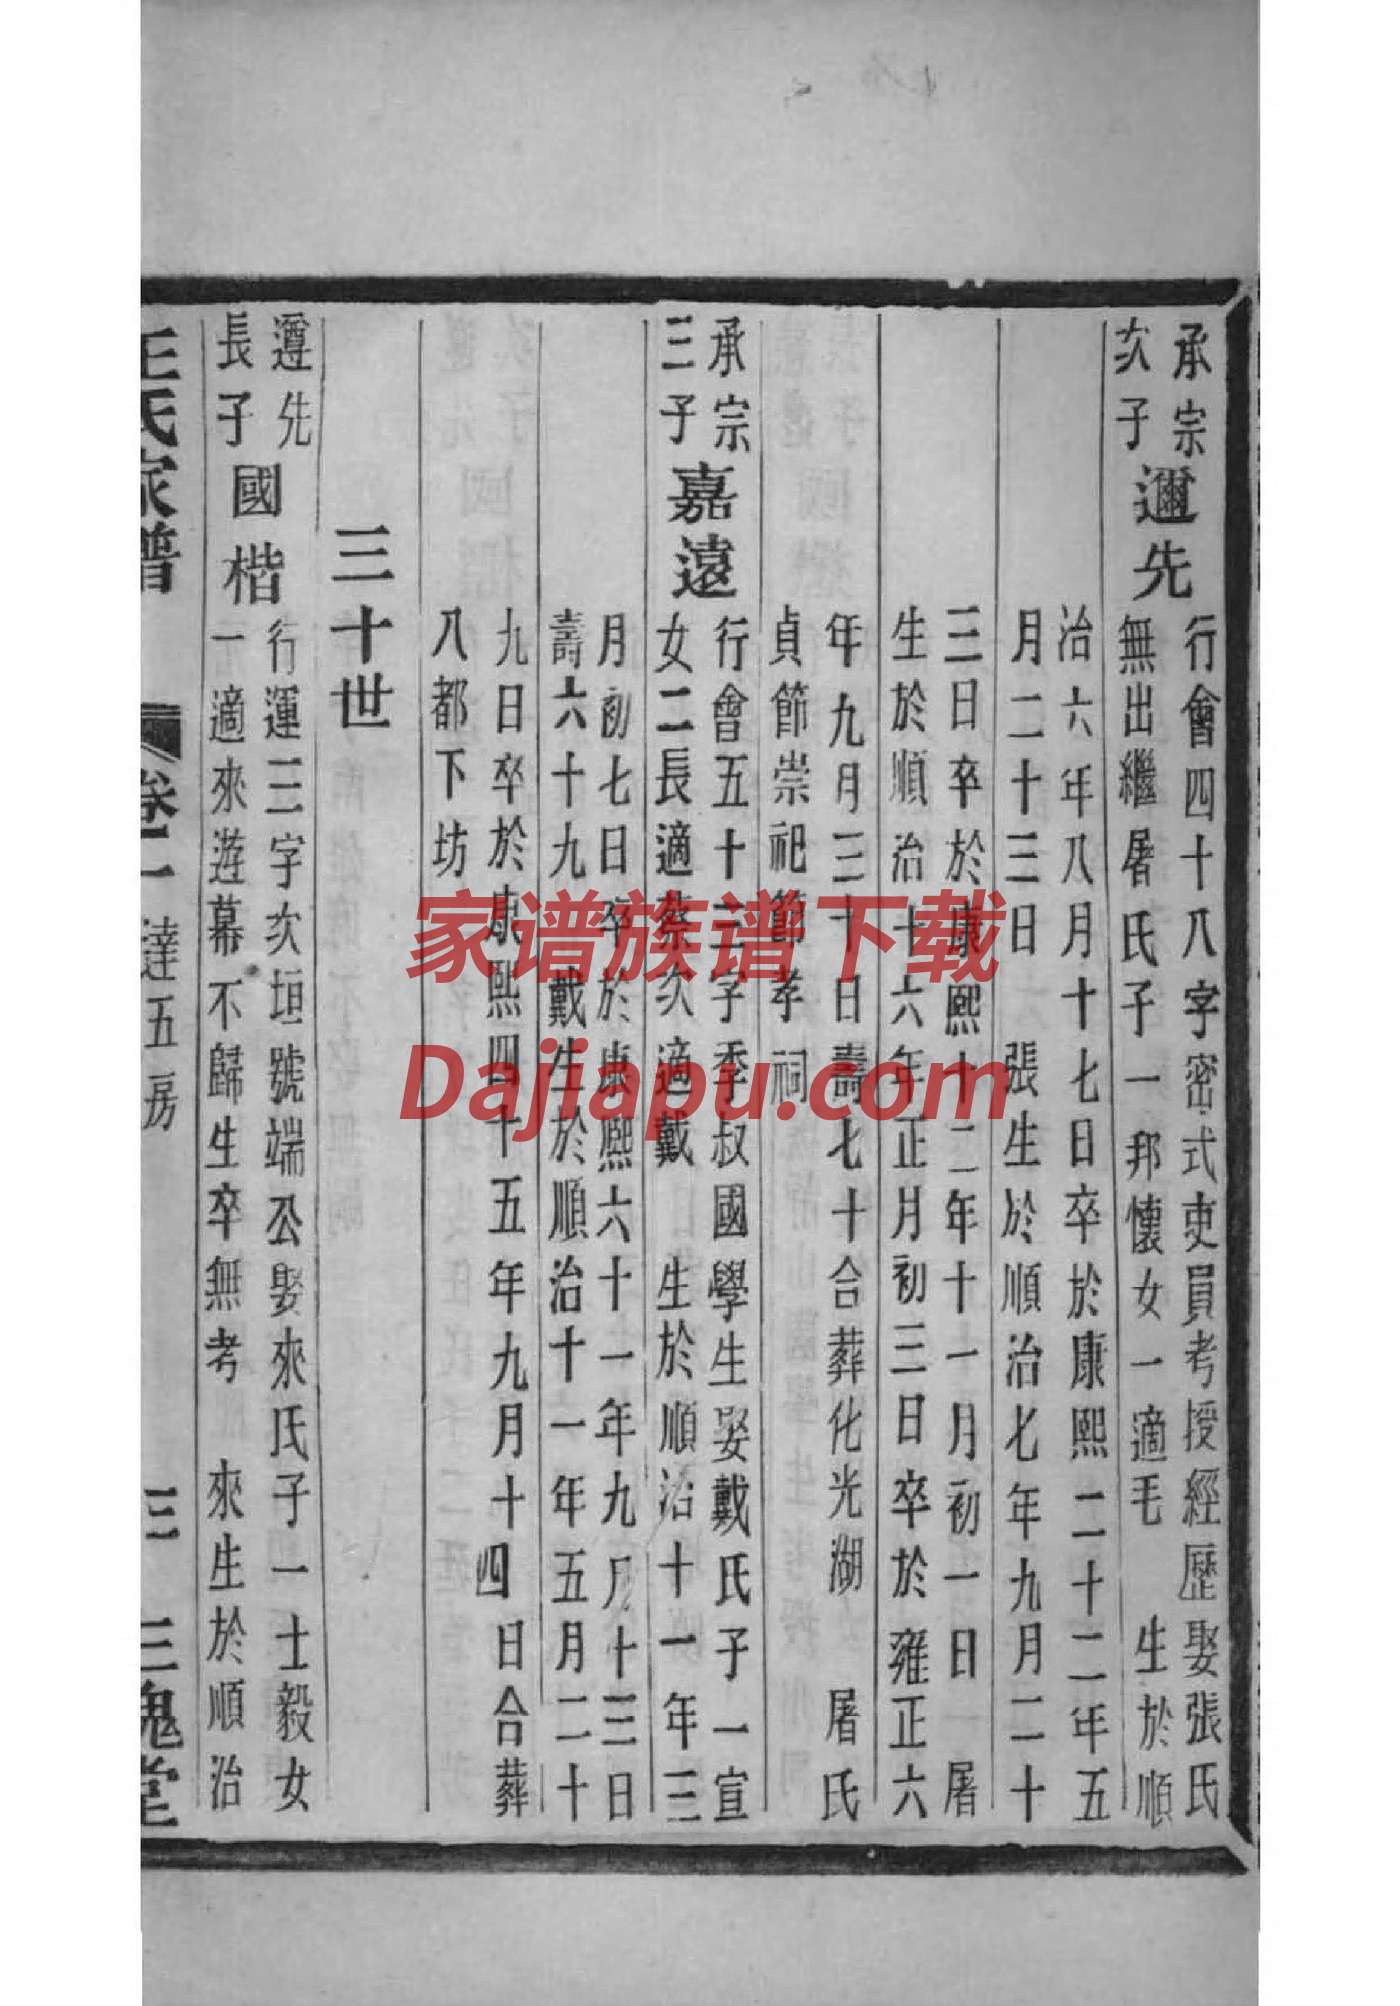 承宗
次子
邇先
行會四十八字密式吏員考授經歷娶張氏
無出繼屠氏子一邦懷女一適毛　生於順
治六年八月十七日卒於康熙二十二年五
月二十三日　張生於順治七年九月二十
三日卒於康熙十二年十一月初一日　屠
生於順治十六年正月初三日卒於雍正六
年九月三十日壽七十合葬化光湖　屠氏
貞節崇祀節孝祠
承宗
三子
嘉遠
行會五十三字季叔國學生娶戴氏子一宣
女二長適蔡次適戴　生於順治十一年三
月初七日卒於康熙六十一年九月十三日
壽六十九　戴生於順治十一年五月二十
九日卒於康熙四十五年九月十四日合葬
八都下坊
三十世
遵先
長子
國楷
行運三字次垣號端公娶來氏子一士毅女
一適來遊幕不歸生卒無考　來生於順治
王氏家譜
卷二
達五房
三
三槐堂
家谱族谱下载
Dajiapu.com